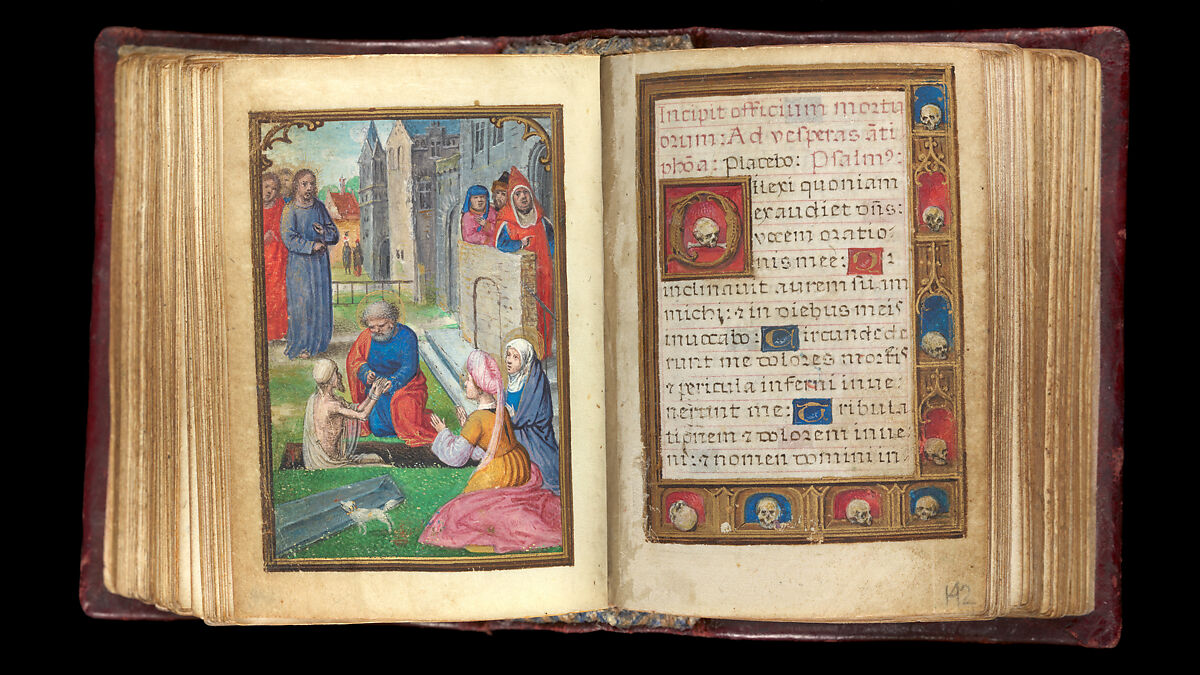 Incipit officium mortu
orum: Ad vesperas añti
phõa: Placebo: Psalmꝰ:
Dilexi quoniam
exaudiet dñs:
vocem oratio-
nis meę: Q̃
inclinavit aurem suam
michi: ⁊ in diebus meis
invocabo: Circundede
runt me dolores mortis
⁊ pericula inferni inve-
nerunt me: Tribula
tionem ⁊ dolorem inve-
ni: ⁊ nomen domini in-
142